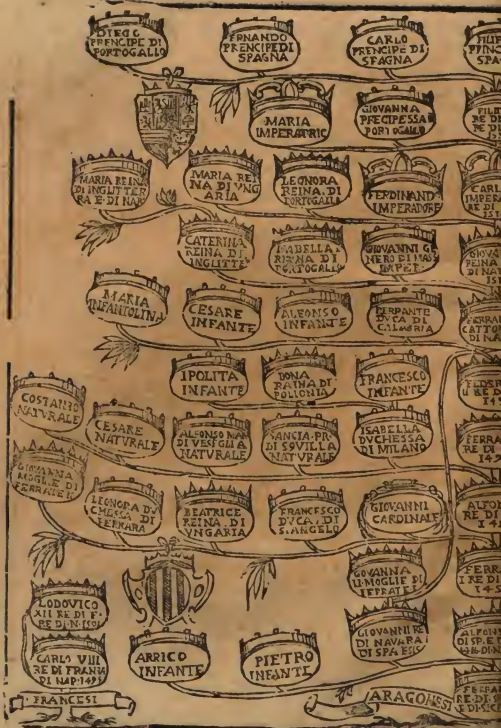 DIEGO
PRENCIPE DI
PORTOGALLO
FRNANDO
PRENCIPE DI
SPAGNA
CARLO
PRENCIPE DI
SPAGNA
FILIP
PRINC
SPA
MARIA
IMPERATRIC
GIOVANNA
PRECIPESSA
PORTOGALLO
FILI
RE DI
MARIA REINA
DI INGLITTER
RA E DI NAP
MARIA REI
NA DI VNG
ARIA
LEONORA
REINA. DI
PORTOGALLO
FERDINAND
IMPERADORE
CARL
IMPERA
RE DI
CATERINA
REINA DI
INGLITTE
ISABELLA
REINA DI
PORTOGALLO
GIOVANNI G
NERO DI MASS
IMPET
GIOVA
REINA
DI NA
MARIA
INFANTOLINA
CESARE
INFANTE
ALFONSO
INFANTE
FERRANTE
DVCA DI
CALABRIA
FERRA
CATTO
DI NA
IPOLITA
INFANTE
BONA
RAINA DI
POLLONIA
FRANCESCO
INFANTE
COSTANZO
NATVRALE
CESARE
NATVRALE
ALFONSO
NATVRALE
SANCIA PR
DI SQVILLA
NATVRALE
ISABELLA
DVCHESSA
DI MILANO
FERRA
RE DI
149
GIOVANNA
MOGLIE DI
FERRATE II
LEONORA DV
CHESSA DI
FERRARA
BEATRICE
REINA. DI
VNGARIA
FRANCESCO
DVCA. DI
S. ANGELO
GIOVANNI
CARDINALE
ALFON
RE DI
14
GOVANNA
II MOGLIE DI
FERR
I RE DI
145
LODOVICO
XII RE DI F.
RE DI N. 150
GIOVANNI RE
DI NAVARA
DI SPA
ALFONS
CARLO VIII
RE DI FRANIA
DI NAP 1495
ARRICO
INFANTE
PIETRO
INFANTE
FRANCESI
ARAGONESI